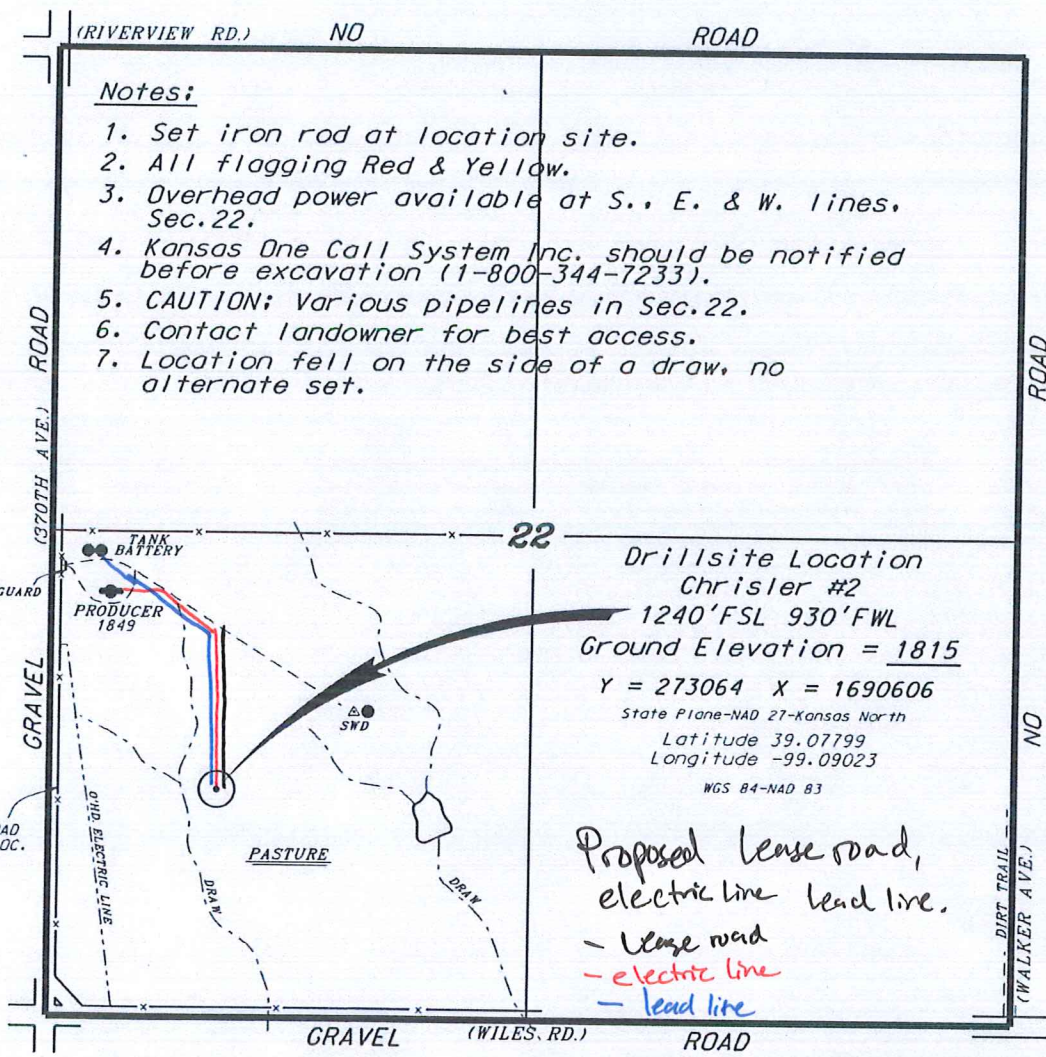 (RIVERVIEW RD.) NO ROAD
Notes:
1. Set iron rod at location site.
2. All flagging Red & Yellow.
3. Overhead power available at S., E. & W. lines,
Sec.22.
4. Kansas One Call System Inc. should be notified
before excavation (1-800-344-7233).
5. CAUTION: Various pipelines in Sec.22.
6. Contact landowner for best access.
7. Location fell on the side of a draw, no
alternate set.
GRAVEL (370TH AVE.) ROAD
ROAD
NO
(WALKER AVE.)
DIRT TRAIL
22
TANK
BATTERY
GUARD
PRODUCER
1849
SWD
Drillsite Location
Chrisler #2
1240'FSL 930'FWL
Ground Elevation = 1815
Y = 273064 X = 1690606
State Plane-NAD 27-Kansas North
Latitude 39.07799
Longitude -99.09023
WGS 84-NAD 83
O'HD. ELECTRIC LINE
PASTURE
DRAW
DRAW
AD
OC.
Proposed lease road,
electric line lead line.
- lease road
- electric line
- lead line
GRAVEL (WILES RD.) ROAD